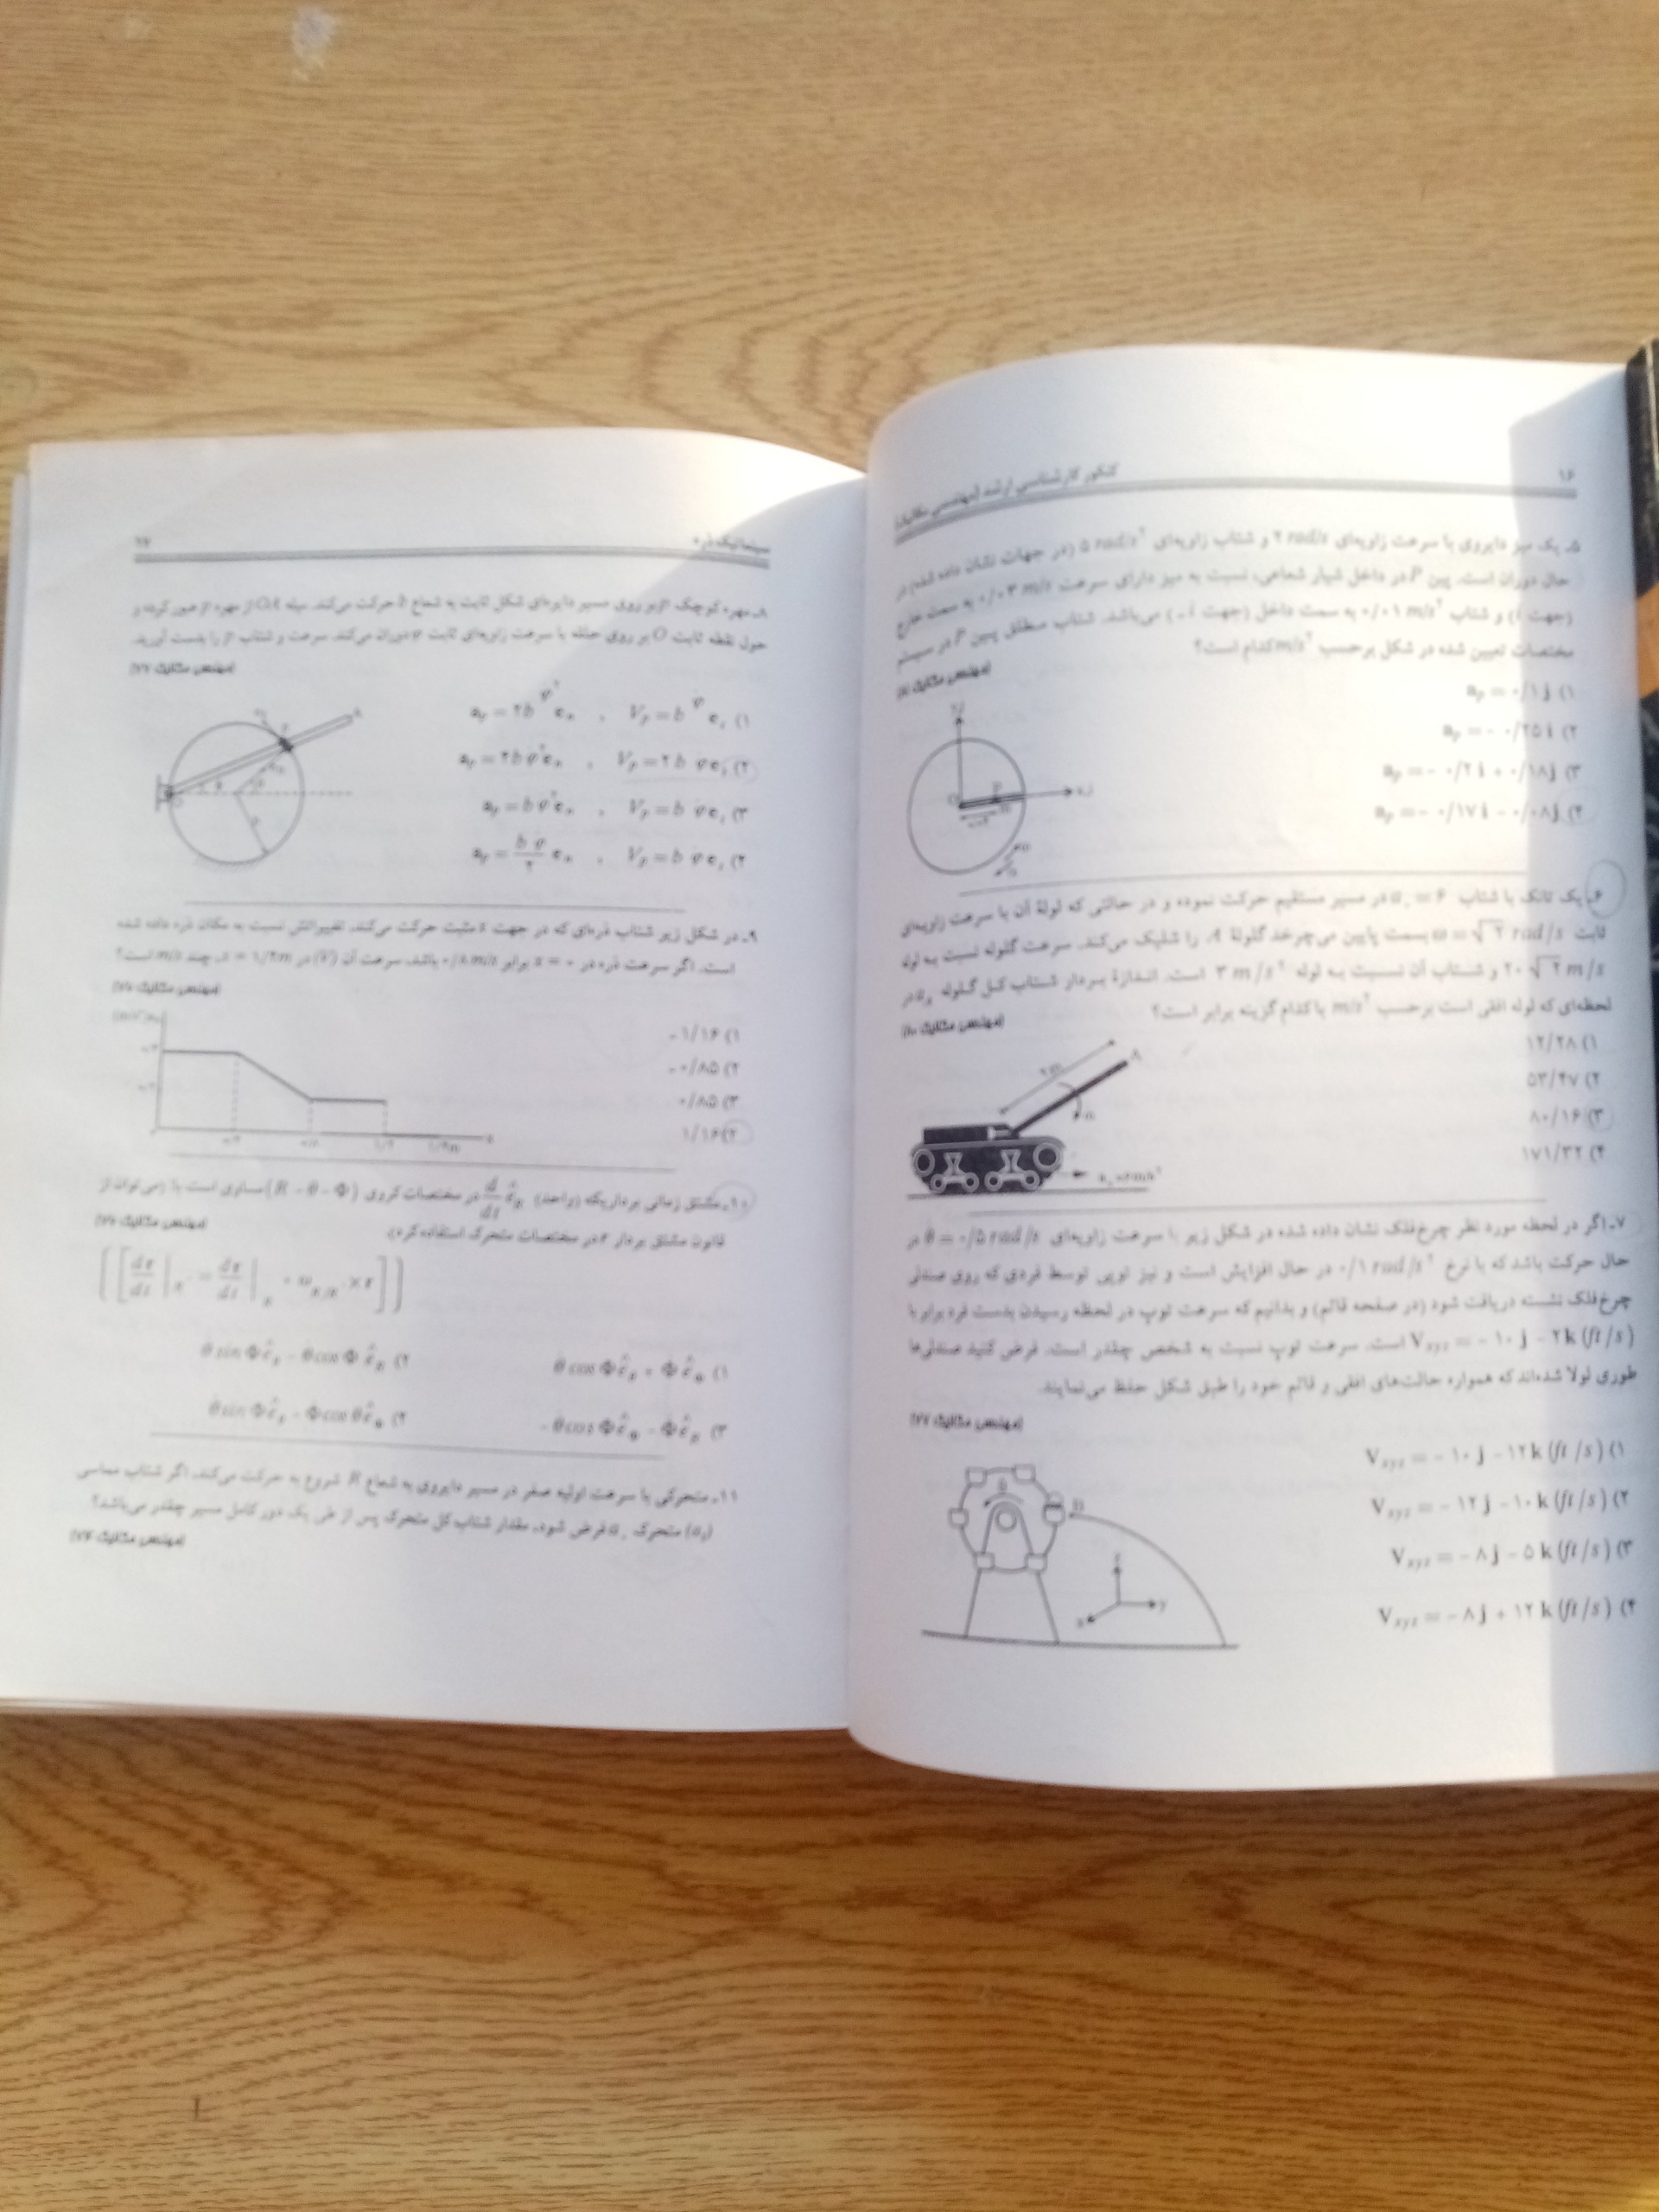 ۱۶
کنکور کارشناسی ارشد (مهندسی مکانیک)
۵ـ یک میز دایروی با سرعت زاویه‌ای ۲ rad/s و شتاب زاویه‌ای ۵ rad/s² (در جهات نشان داده شده) در
حال دوران است. پین P در داخل شیار شعاعی، نسبت به میز دارای سرعت ۰/۰۳ m/s به سمت خارج
(جهت i) و شتاب ۰/۰۱ m/s² به سمت داخل (جهت i -) می‌باشد. شتاب مطلق پین P در سیستم
مختصات تعیین شده در شکل برحسب m/s² کدام است؟
(مهندسی مکانیک
۱) aₚ = ۰/۱ j
۲) aₚ = - ۰/۲۵ i
۳) aₚ = - ۰/۲ i + ۰/۱۸ j
۴) aₚ = - ۰/۱۷ i - ۰/۰۸ j
۶ـ یک تانک با شتاب a. = ۶ در مسیر مستقیم حرکت نموده و در حالتی که لولهٔ آن با سرعت زاویه‌ای
ثابت ω = √۲ rad/s بسمت پایین می‌چرخد گلولهٔ A، را شلیک می‌کند. سرعت گلوله نسبت به لوله
۲۰√۲ m/s و شتاب آن نسبت به لوله ۳ m/s² است. اندازهٔ بردار شتاب کل گلوله در
لحظه‌ای که لوله افقی است برحسب m/s² با کدام گزینه برابر است؟
(مهندسی مکانیک ۸۰)
۱) ۱۲/۲۸
۲) ۵۳/۴۷
۳) ۸۰/۱۶
۴) ۱۷۱/۳۲
۲m
A
ω
۷ـ اگر در لحظه مورد نظر چرخ‌فلک نشان داده شده در شکل زیر با سرعت زاویه‌ای θ̇ = ۰/۵ rad/s در
حال حرکت باشد که با نرخ ۰/۱ rad/s² در حال افزایش است و نیز توپی توسط فردی که روی صندلی
چرخ‌فلک نشسته دریافت شود (در صفحه قائم) و بدانیم که سرعت توپ در لحظه رسیدن بدست فرد برابر با
V_xyz = - ۱۰ j - ۲ k (ft/s) است. سرعت توپ نسبت به شخص چقدر است. فرض کنید صندلی‌ها
طوری لولا شده‌اند که همواره حالت‌های افقی و قائم خود را طبق شکل حفظ می‌نمایند.
(مهندسی مکانیک ۷۷)
۱) V_xyz = - ۱۰ j - ۱۲ k (ft/s)
۲) V_xyz = - ۱۲ j - ۱۰ k (ft/s)
۳) V_xyz = - ۸ j - ۵ k (ft/s)
۴) V_xyz = - ۸ j + ۱۲ k (ft/s)
B
z
y
x
سینماتیک ذره
۱۷
۸ـ مهره کوچک P بر روی مسیر دایره‌ای شکل ثابت به شعاع b حرکت می‌کند. میله OA از مهره P عبور کرده و
حول نقطه ثابت O بر روی حلقه با سرعت زاویه‌ای ثابت φ̇ دوران می‌کند. سرعت و شتاب P را بدست آورید.
(مهندسی مکانیک ۷۷)
۱) Vₚ = b φ̇ eₜ , aₚ = ۴b φ̇² eₙ
۲) Vₚ = ۲ b φ̇ eₜ , aₚ = ۴b φ̇² eₙ
۳) Vₚ = b φ̇ eₜ , aₚ = b φ̇² eₙ
۴) Vₚ = b φ̇ eₜ , aₚ = b φ̇ / ۲ eₙ
۹ـ در شکل زیر شتاب ذره‌ای که در جهت s مثبت حرکت می‌کند، تغییراتش نسبت به مکان ذره داده شده
است. اگر سرعت ذره در s = ۰ برابر ۰/۸ m/s باشد، سرعت آن (V) در s = ۱/۴ m، چند m/s است؟
(مهندسی مکانیک
۱) -۱/۱۶
۲) -۰/۸۵
۳) ۰/۸۵
۴) ۱/۱۶
۱۰ـ مشتق زمانی بردار یکه (واحد) d/dt ê_R در مختصات کروی (R - θ - Φ) مساوی است با: (می‌توان از
قانون مشتق بردار r در مختصات متحرک استفاده کرد).
(مهندسی مکانیک
۱) θ̇ cos Φ ê_θ + Φ̇ ê_Φ
۲) θ̇ sin Φ ê_θ - θ̇ cos Φ ê_R
۳) - θ̇ cos Φ ê_Φ - Φ̇ ê_R
۴) θ̇ sin Φ ê_θ - Φ̇ cos θ ê_Φ
۱۱ـ متحرکی با سرعت اولیه صفر در مسیر دایروی به شعاع R شروع به حرکت می‌کند. اگر شتاب مماسی
(aₜ) متحرک a. فرض شود. مقدار شتاب کل متحرک پس از طی یک دور کامل مسیر چقدر می‌باشد؟
(مهندسی مکانیک ۷۴)